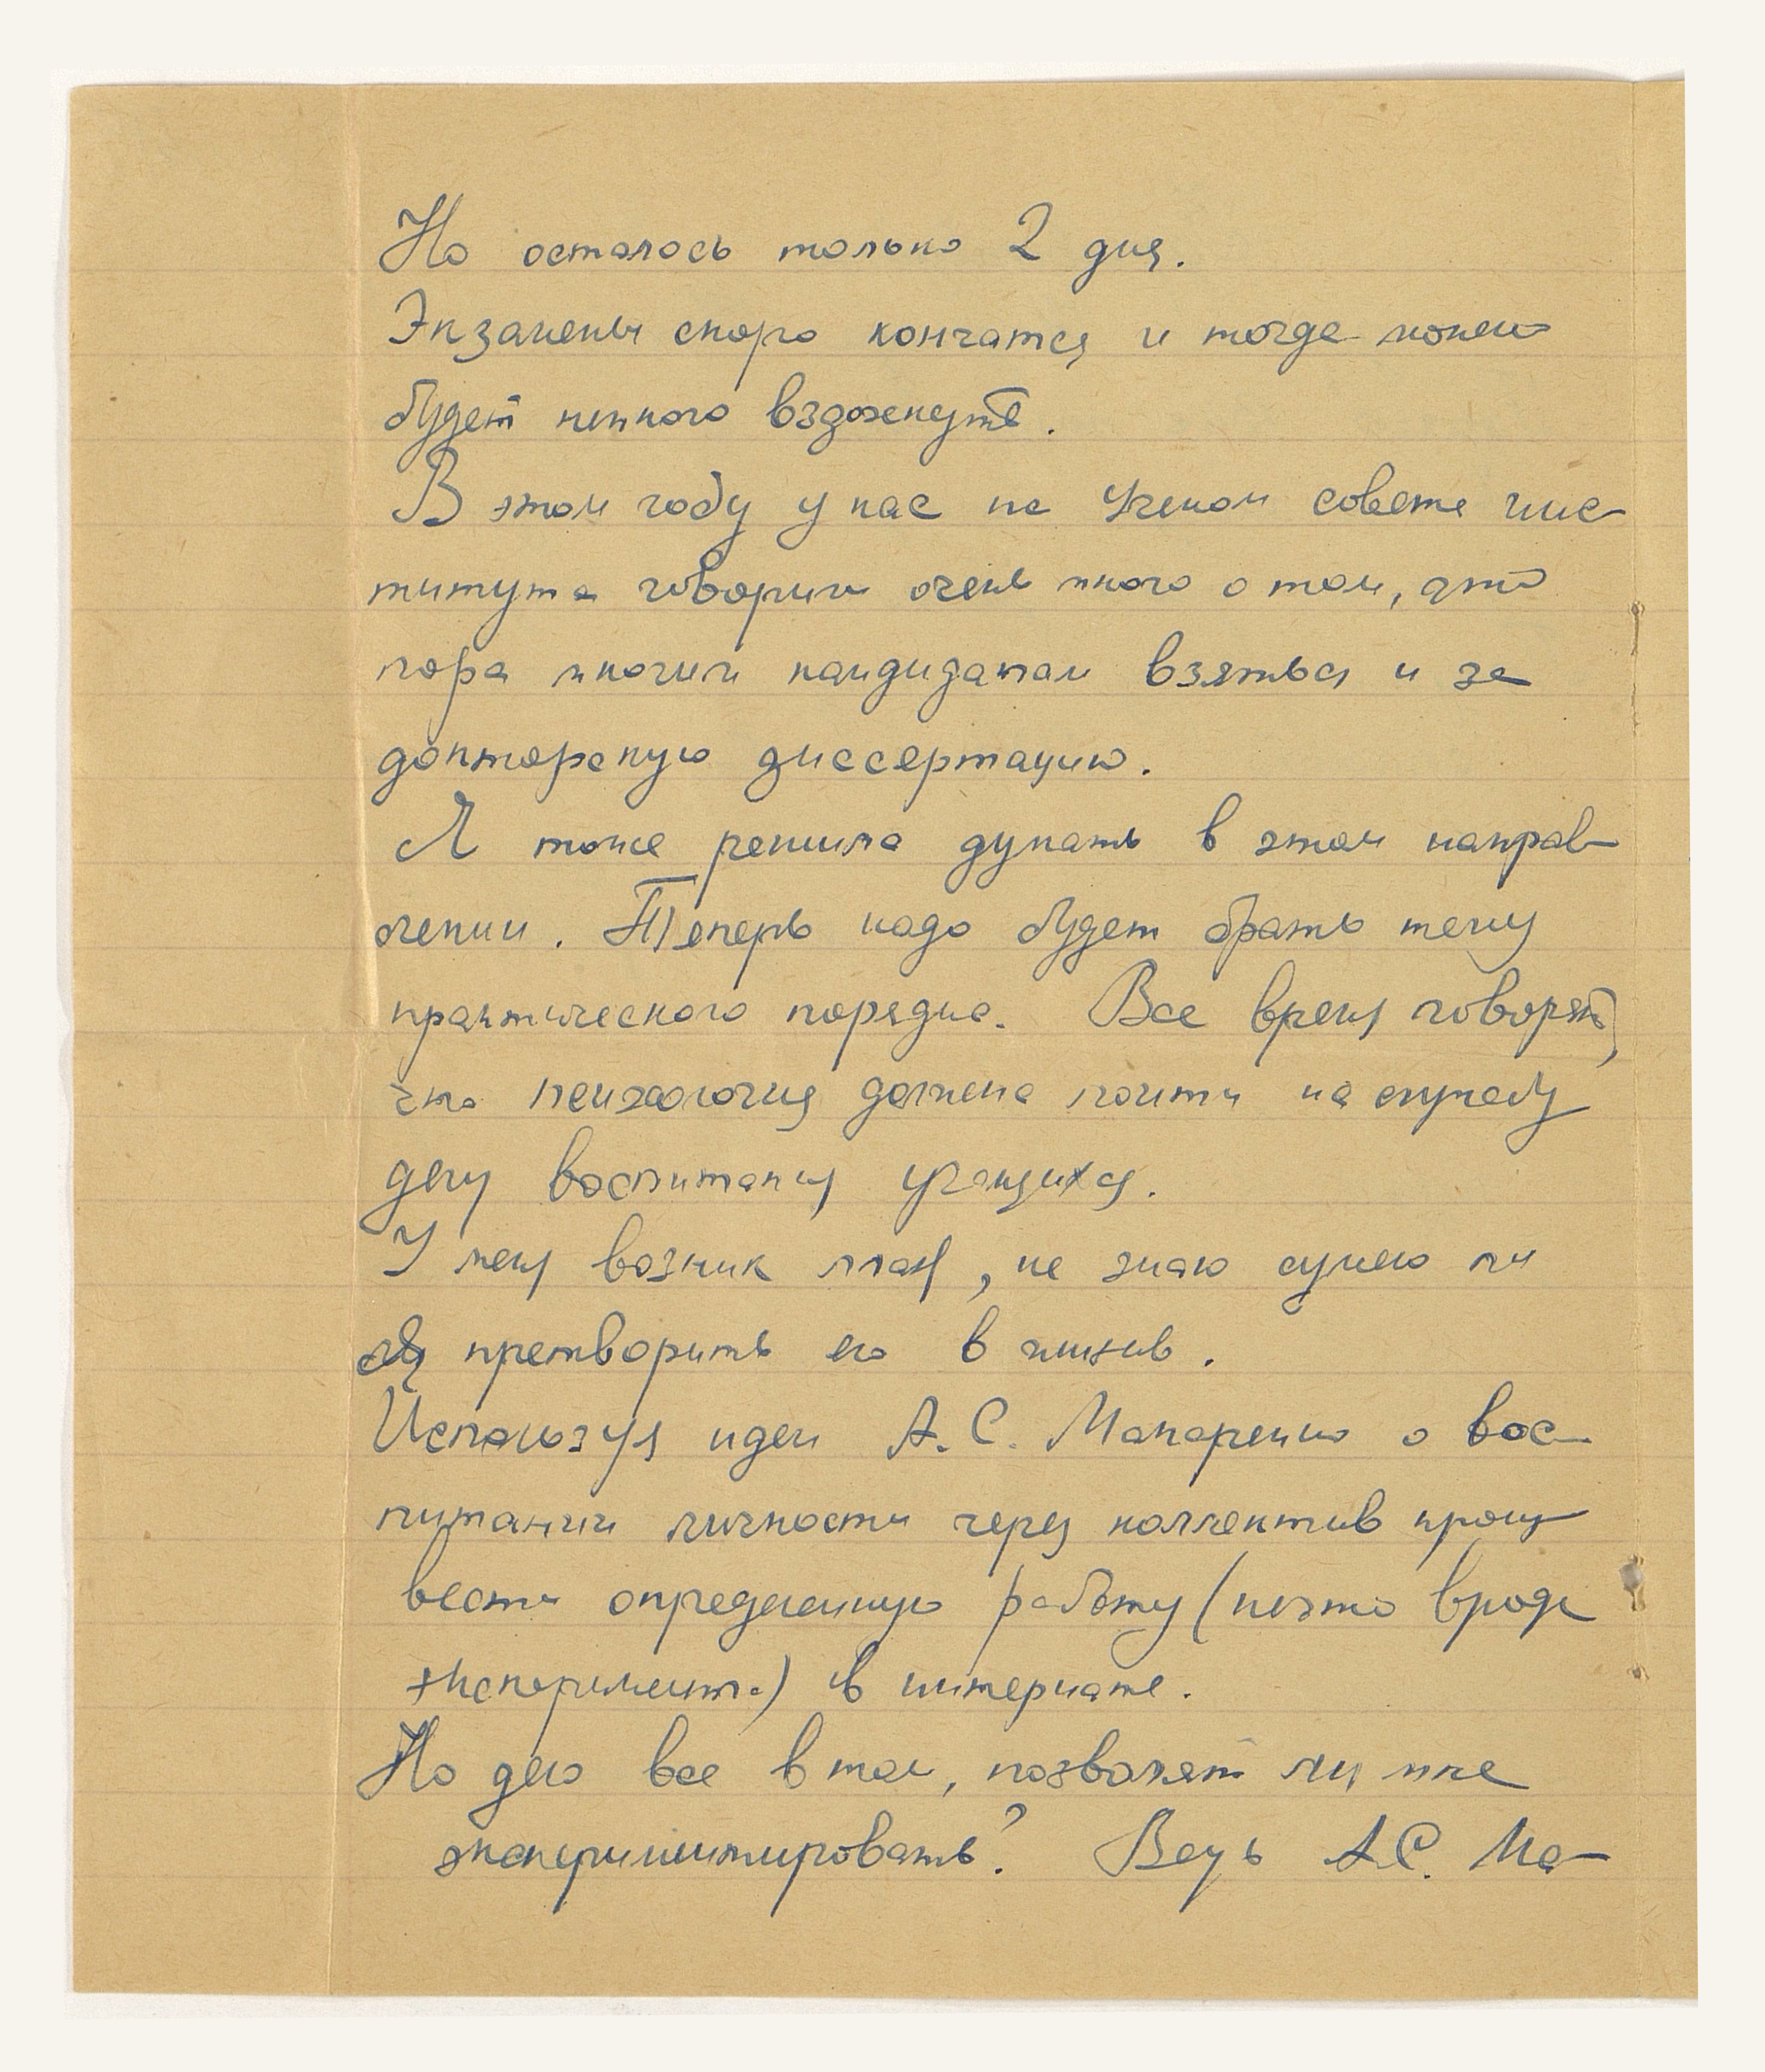 Но осталось только 2 дня.
Экзамены скоро кончатся и тогда можно
будет немного вздохнуть.
В этом году у нас на Ученом совете инс-
титута говорили очень много о том, что
пора многим кандидатам взяться и за
докторскую диссертацию.
Я тоже решила думать в этом направ-
лении. Теперь надо будет брать тему
практического порядка. Все время говорят,
что психология должна пойти на службу
делу воспитания учащихся.
У меня возник план, не знаю сумею ли
я претворить его в жизнь.
Используя идеи А.С. Макаренко о вос-
питании личности через коллектив произ-
вести определенную работу (нечто вроде
эксперимента) в интернате.
Но дело все в том, позволят ли мне
экспериментировать? Ведь А.С. Ма-